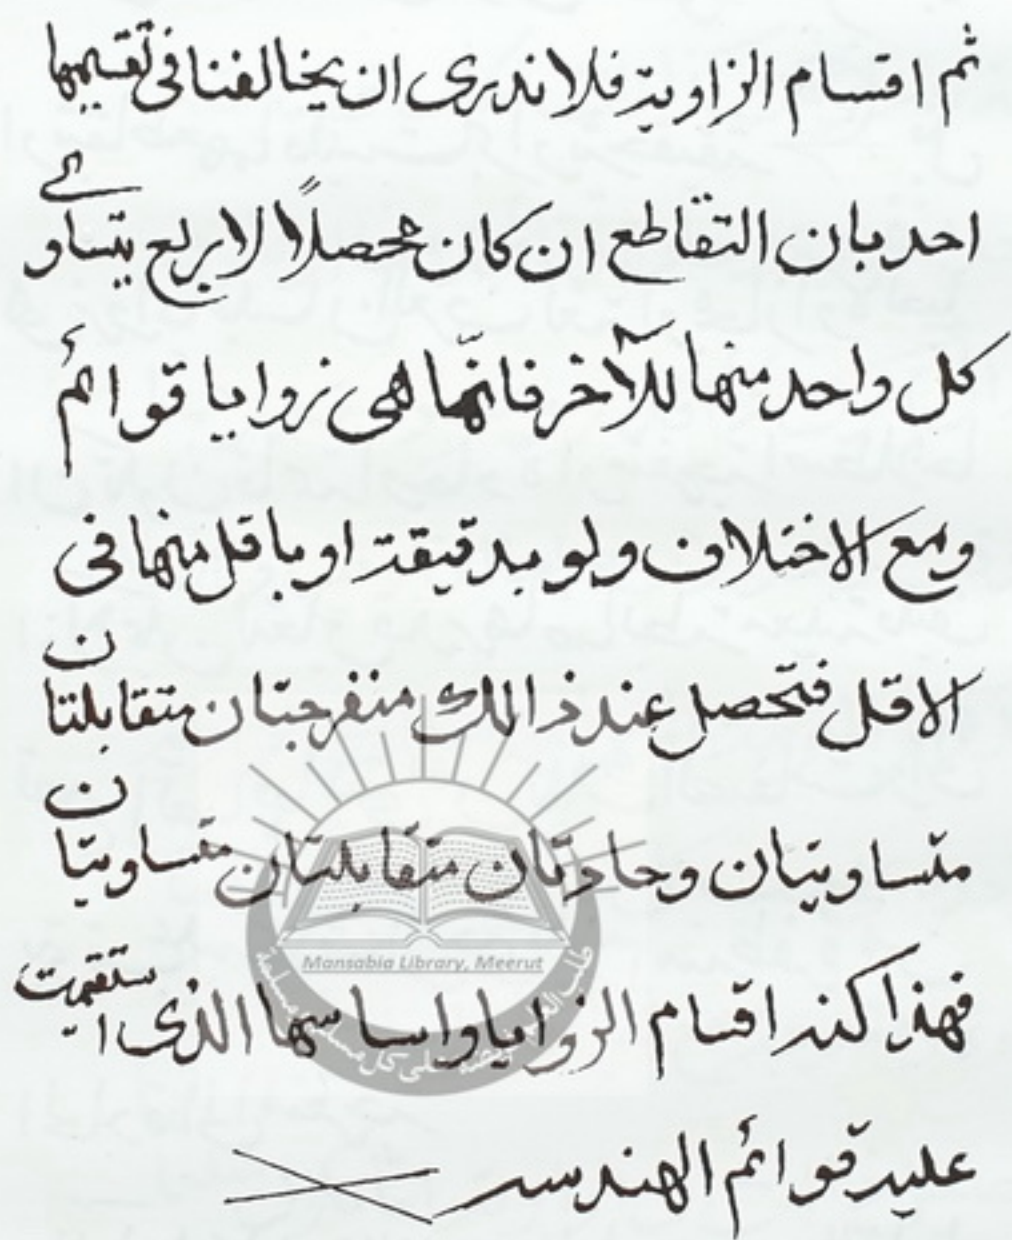 ثم اقسام الزاوية فلا ندرى ان يخالفنا فى تقسيمها
احد بان التقاطع ان كان محصلًا لاربع يتساوى
كل واحد منها للآخر فانّها لهى زوايا قوائم
ومع الاختلاف ولو بدقيقة او باقل منها فى
الاقل فتحصل عند ذالك منفرجتان متقابلتان
متساويتان وحادّتان متقابلتان متساويتان
فهذا كنه اقسام الزوايا واساسها الذى استقيمت
عليه قوائم الهندسه
Mansabia Library, Meerut
طلب العلم فريضة على كل مسلم و مسلمة